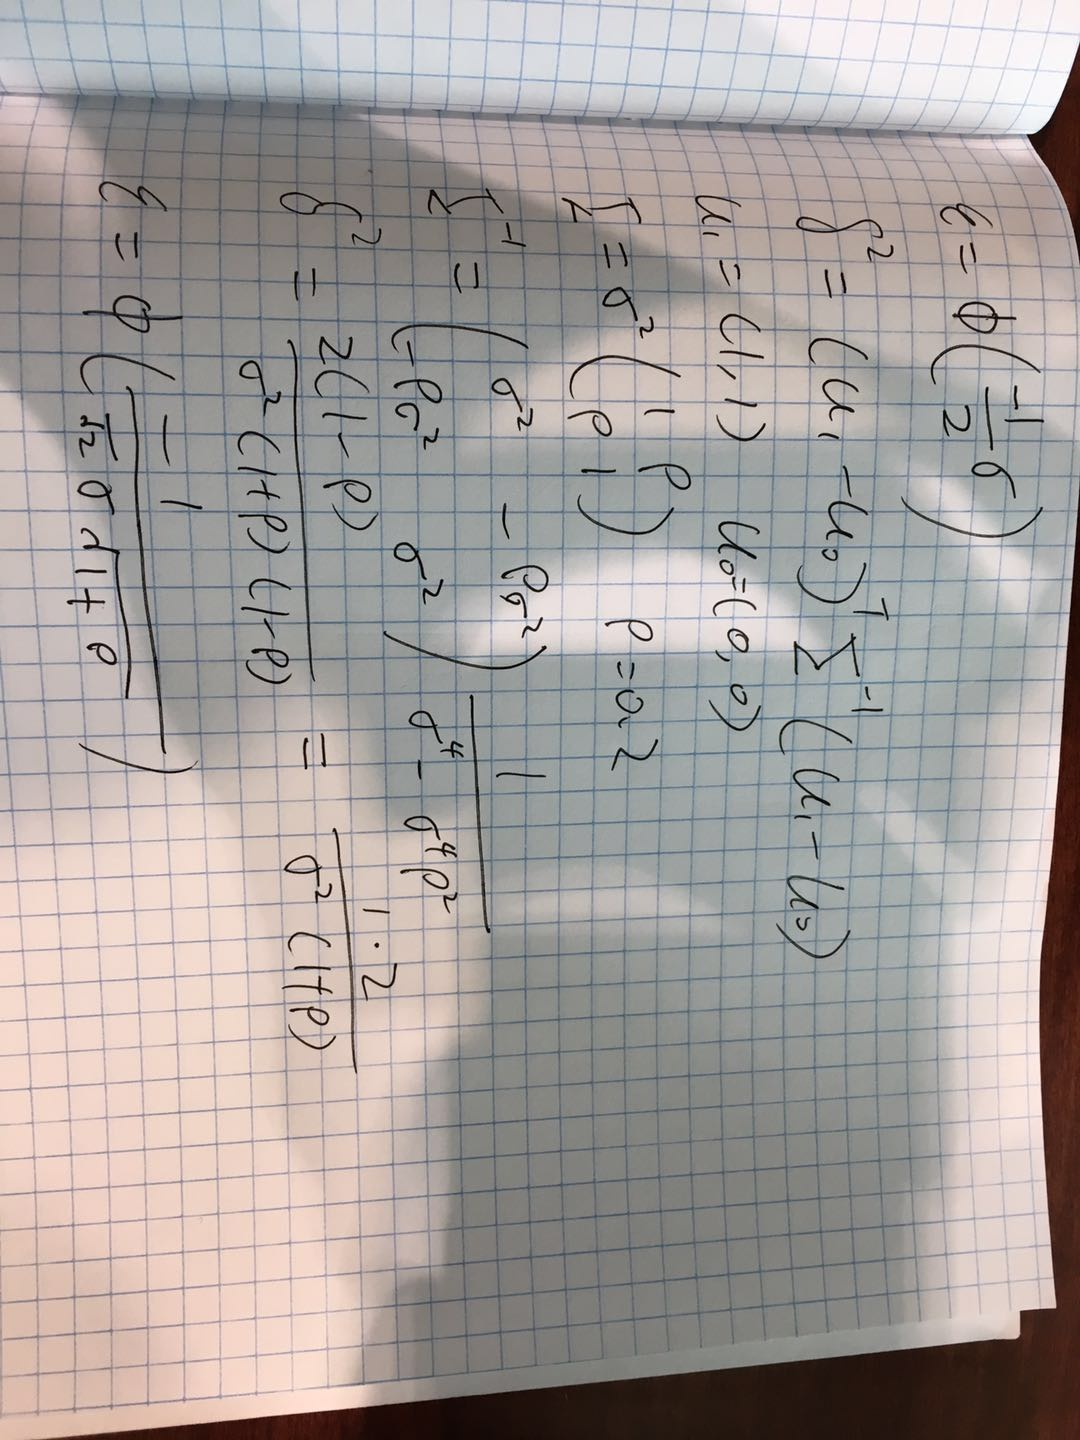 ε = Φ(-1/2 σ)
δ² = (u₁ - u₀)ᵀ Σ⁻¹ (u₁ - u₀)
u₁ = (1,1) u₀=(0,0)
Σ = σ² (1 ρ
ρ 1) ρ=0.2
Σ⁻¹ = (σ² -ρσ²
-ρσ² σ²) 1/(σ⁴ - σ⁴ρ²)
δ² = 2(1-ρ)/(σ²(1+ρ)(1-ρ)) = 1·2/(σ²(1+ρ))
ε = Φ(-1/(√2 σ√(1+ρ)))